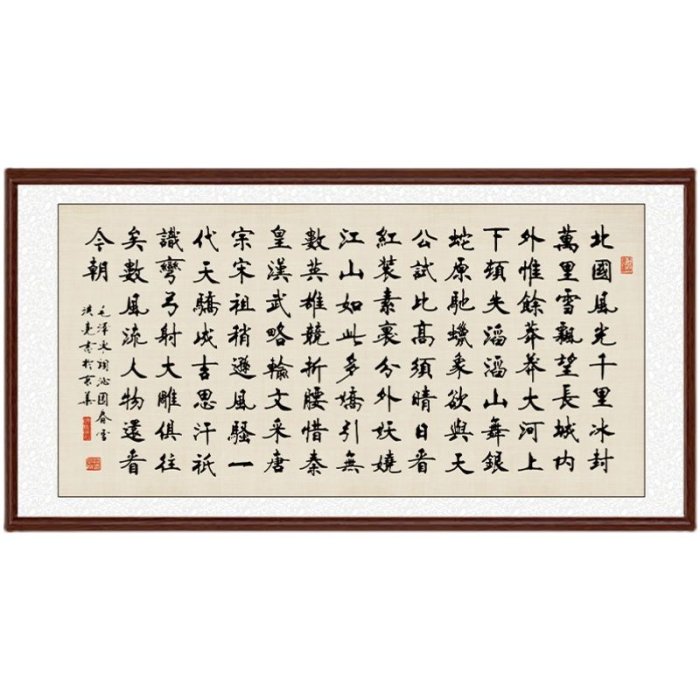 北國風光千里冰封
萬里雪飄望長城内
外惟餘莽莽大河上
下頓失滔滔山舞銀
蛇原馳蠟象欲與天
公試比高須晴日看
紅裝素裹分外妖嬈
江山如此多嬌引無
數英雄競折腰惜秦
皇漢武略輸文采唐
宗宋祖稍遜風騷一
代天驕成吉思汗祇
識彎弓射大雕俱往
矣數風流人物還看
今朝
毛澤東詞沁園春雪
洪亮書於京華